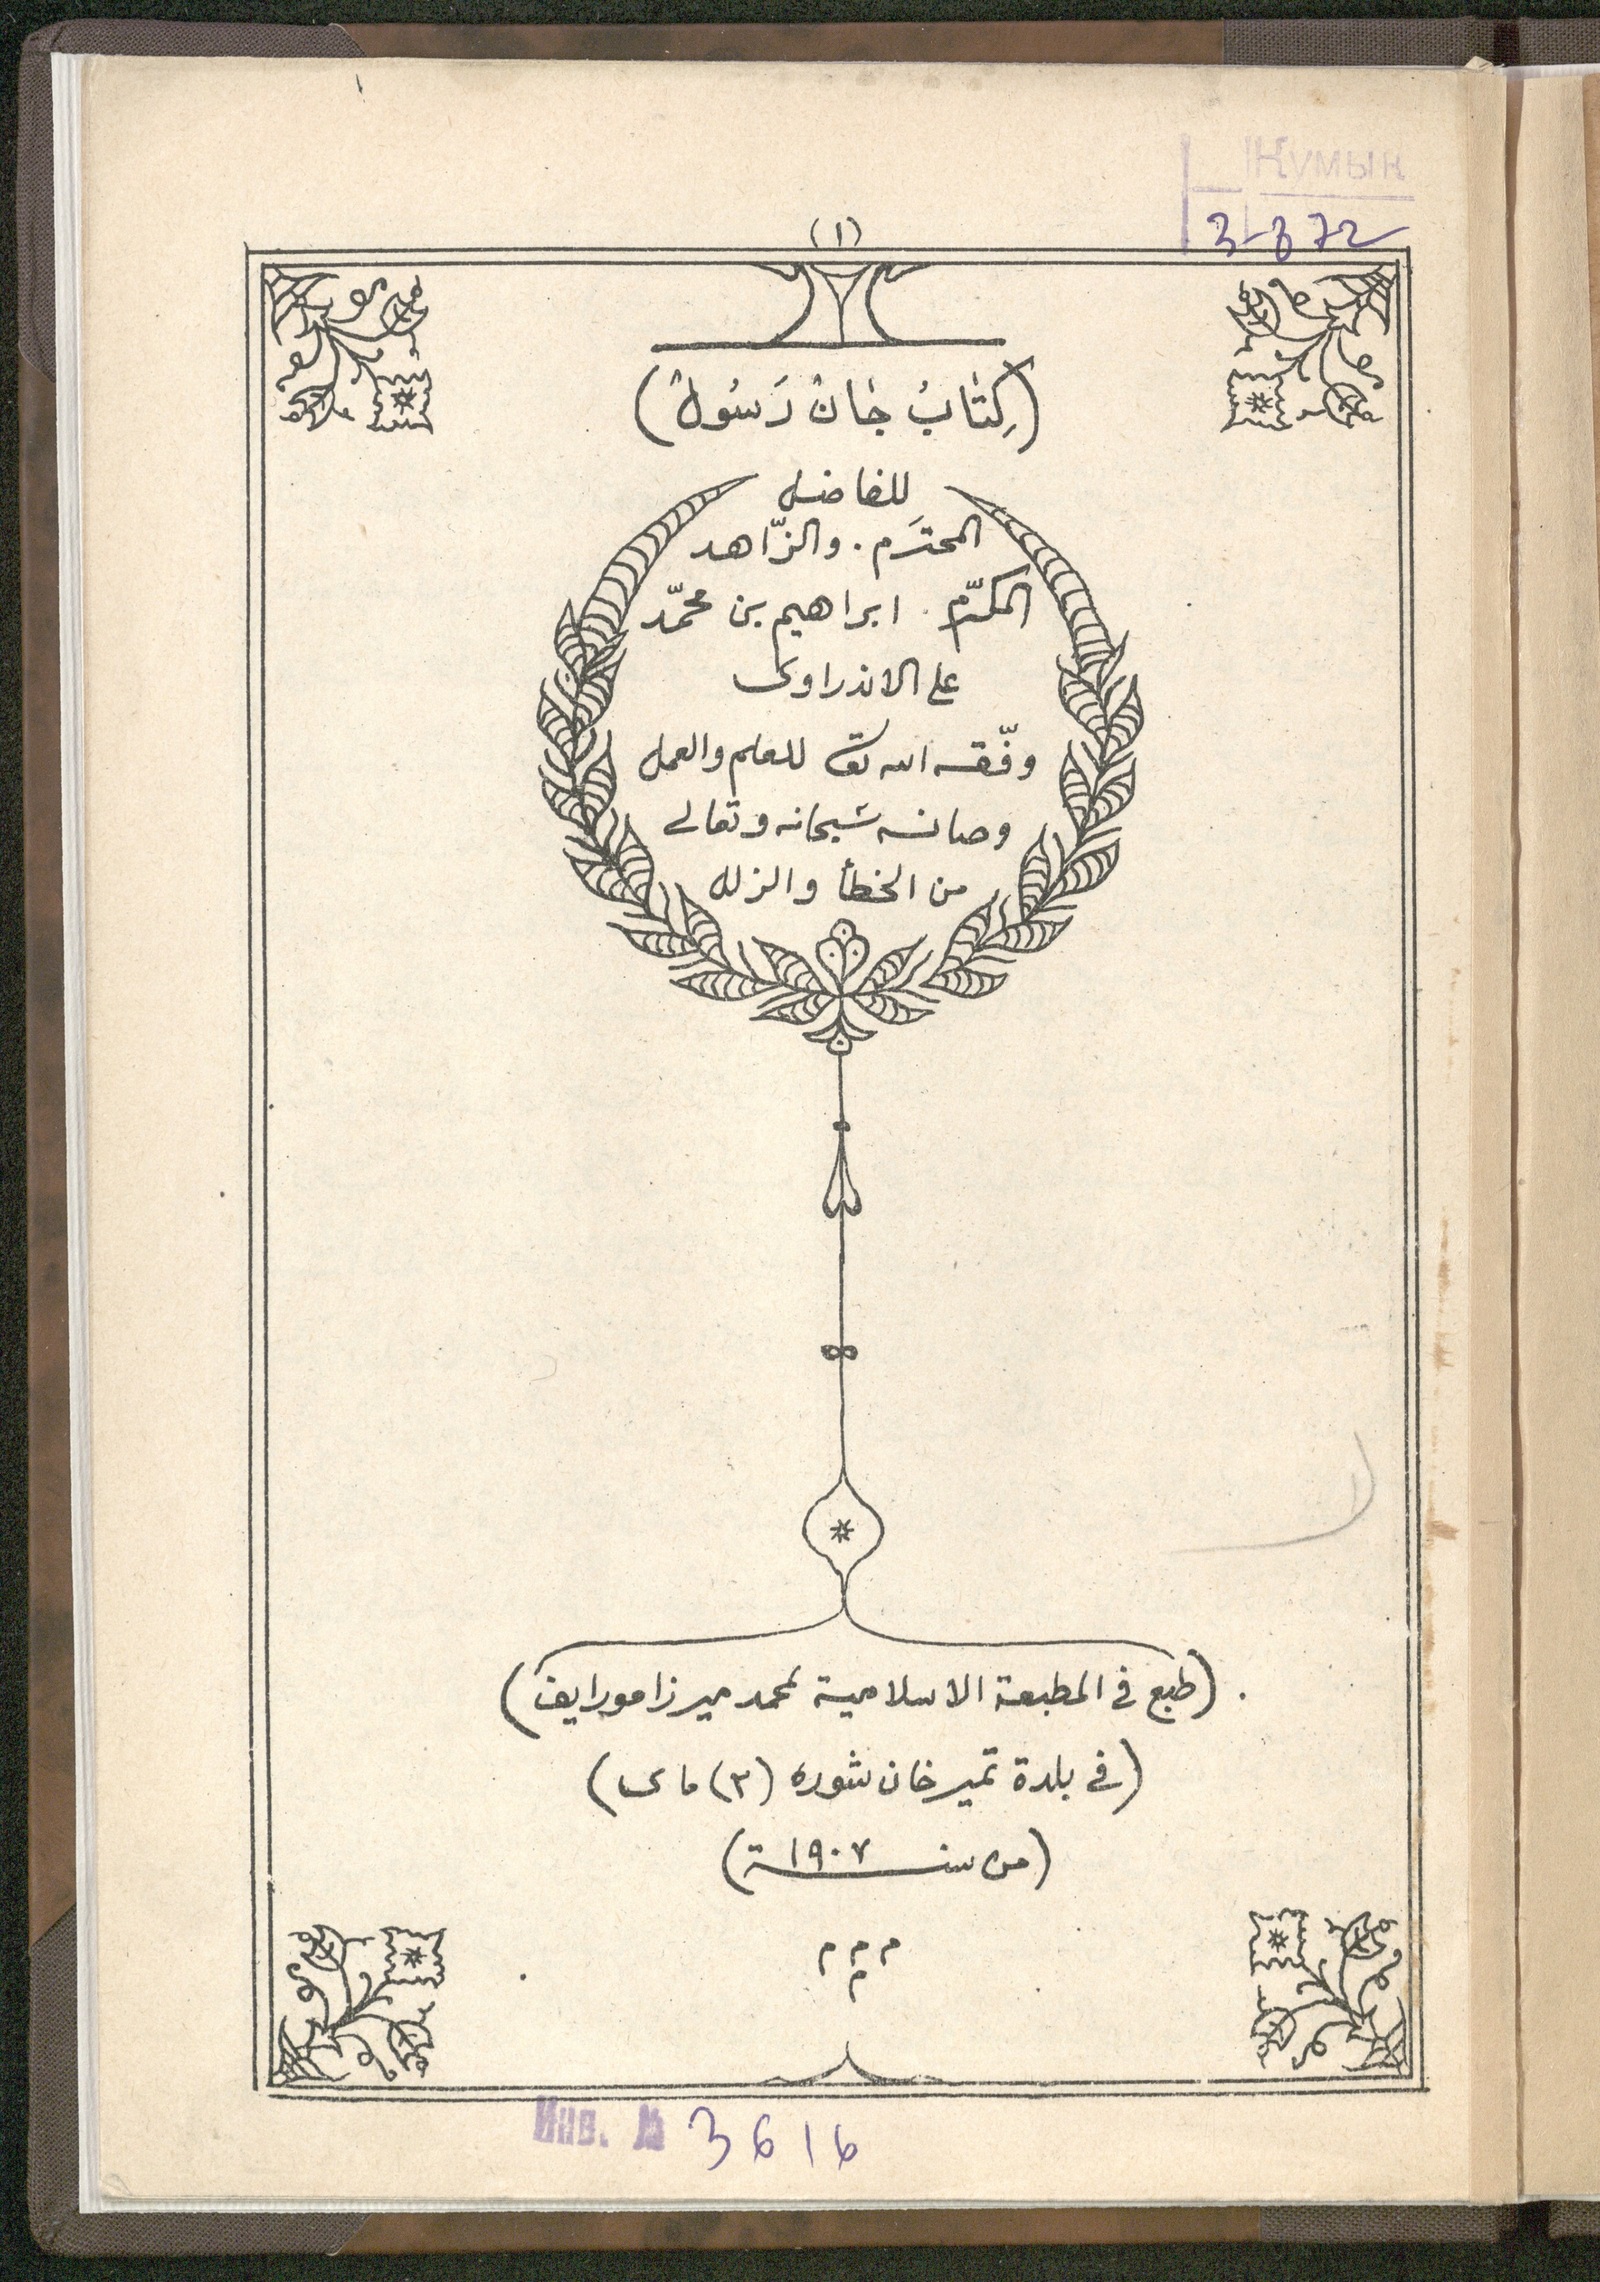 Кумык
3-372
(١)
(كِتَابُ جَانْ رَسُولْ)
للفاضل
المحترَم . والزّاهد
المكرّم . ابراهيم بن محمّد
على الاندراوى
وفّقه الله تعا للعلم والعمل
وصانه سبحانه وتعالى
من الخطأ والزلل
(طبع فى المطبعة الاسلامية لمحمد ميرزا مورايف) .
(فى بلدة تمير خان شوره (٣) ماى)
(من سنة ١٩٠٧)
م م م
م
Инв. № 3616